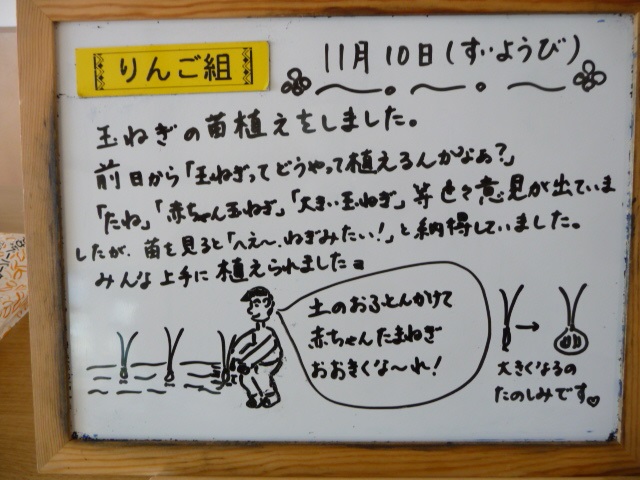 りんご組
11月10日(すいようび)
玉ねぎの苗植えをしました。
前日から「玉ねぎってどうやって植えるんかなぁ?」
「たね」「赤ちゃん玉ねぎ」「大きい玉ねぎ」等色々意見が出ていま
したが、苗を見ると「へえ〜、ねぎみたい!」と納得していました。
みんな上手に植えられました
土のおふとんかけて
赤ちゃんたまねぎ
おおきくな〜れ!
→
大きくなるの
たのしみです♡